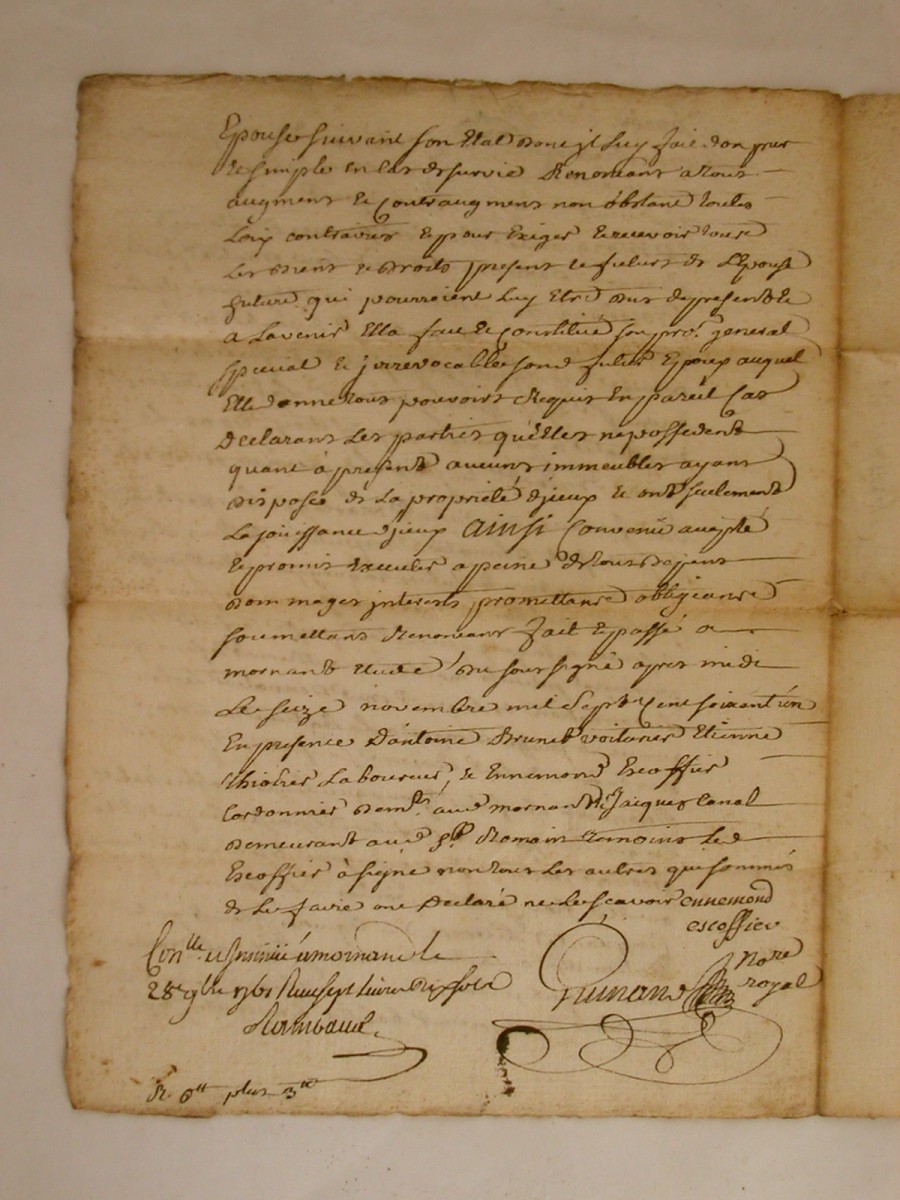 Epouse suivant son Etat dont jl Luy fait don pur
et simple en Cas de survie Renonceant a tous
augment et Contraugment non obstant toutes
Loix contraires et pour Exiger et recevoir tous
Les biens et droits present et futurs de L'Epouse
future qui pourroient Luy Etre dus de present et
a Lavenir Elle fait et Constitué son pro.r general
special et jrrevocable son d futur Epoux auquel
Elle donne tous pouvoirs Requis En pareil Cas
Declarant Les parties qu'Elles ne possedent
quant à present aucuns immeubles ayant
disposé de La proprieté d'jceux et ont seulement
La jouissance d'jceux Ainsi Convenu accepté
et promis Executer a peine de tous depens
dommages jnterests promettant obligeant
soumettant Renonceant fait et passé a
mornant Etude du soussigné apres midi
Le seize novembre mil Sept Cent soixent'un
En presence D'antoine Brunet voiturier Etienne
Thiolier Laboureur, et Ennemond Escoffier
Cordonnier dem.ts aud mornant et Jacques Canal
demeurant aud s.t Romain temoins Led
Escoffier à signé non tous Les autres qui sommés
de Le faire ont Declaré ne Le scavoir ennemond
escoffier
Con.lle et Jnsinüé à mornant le
28e 9bre 1761 Reçu sept Livres dix sols
no.re
royal
R. 6tt plus 3tt